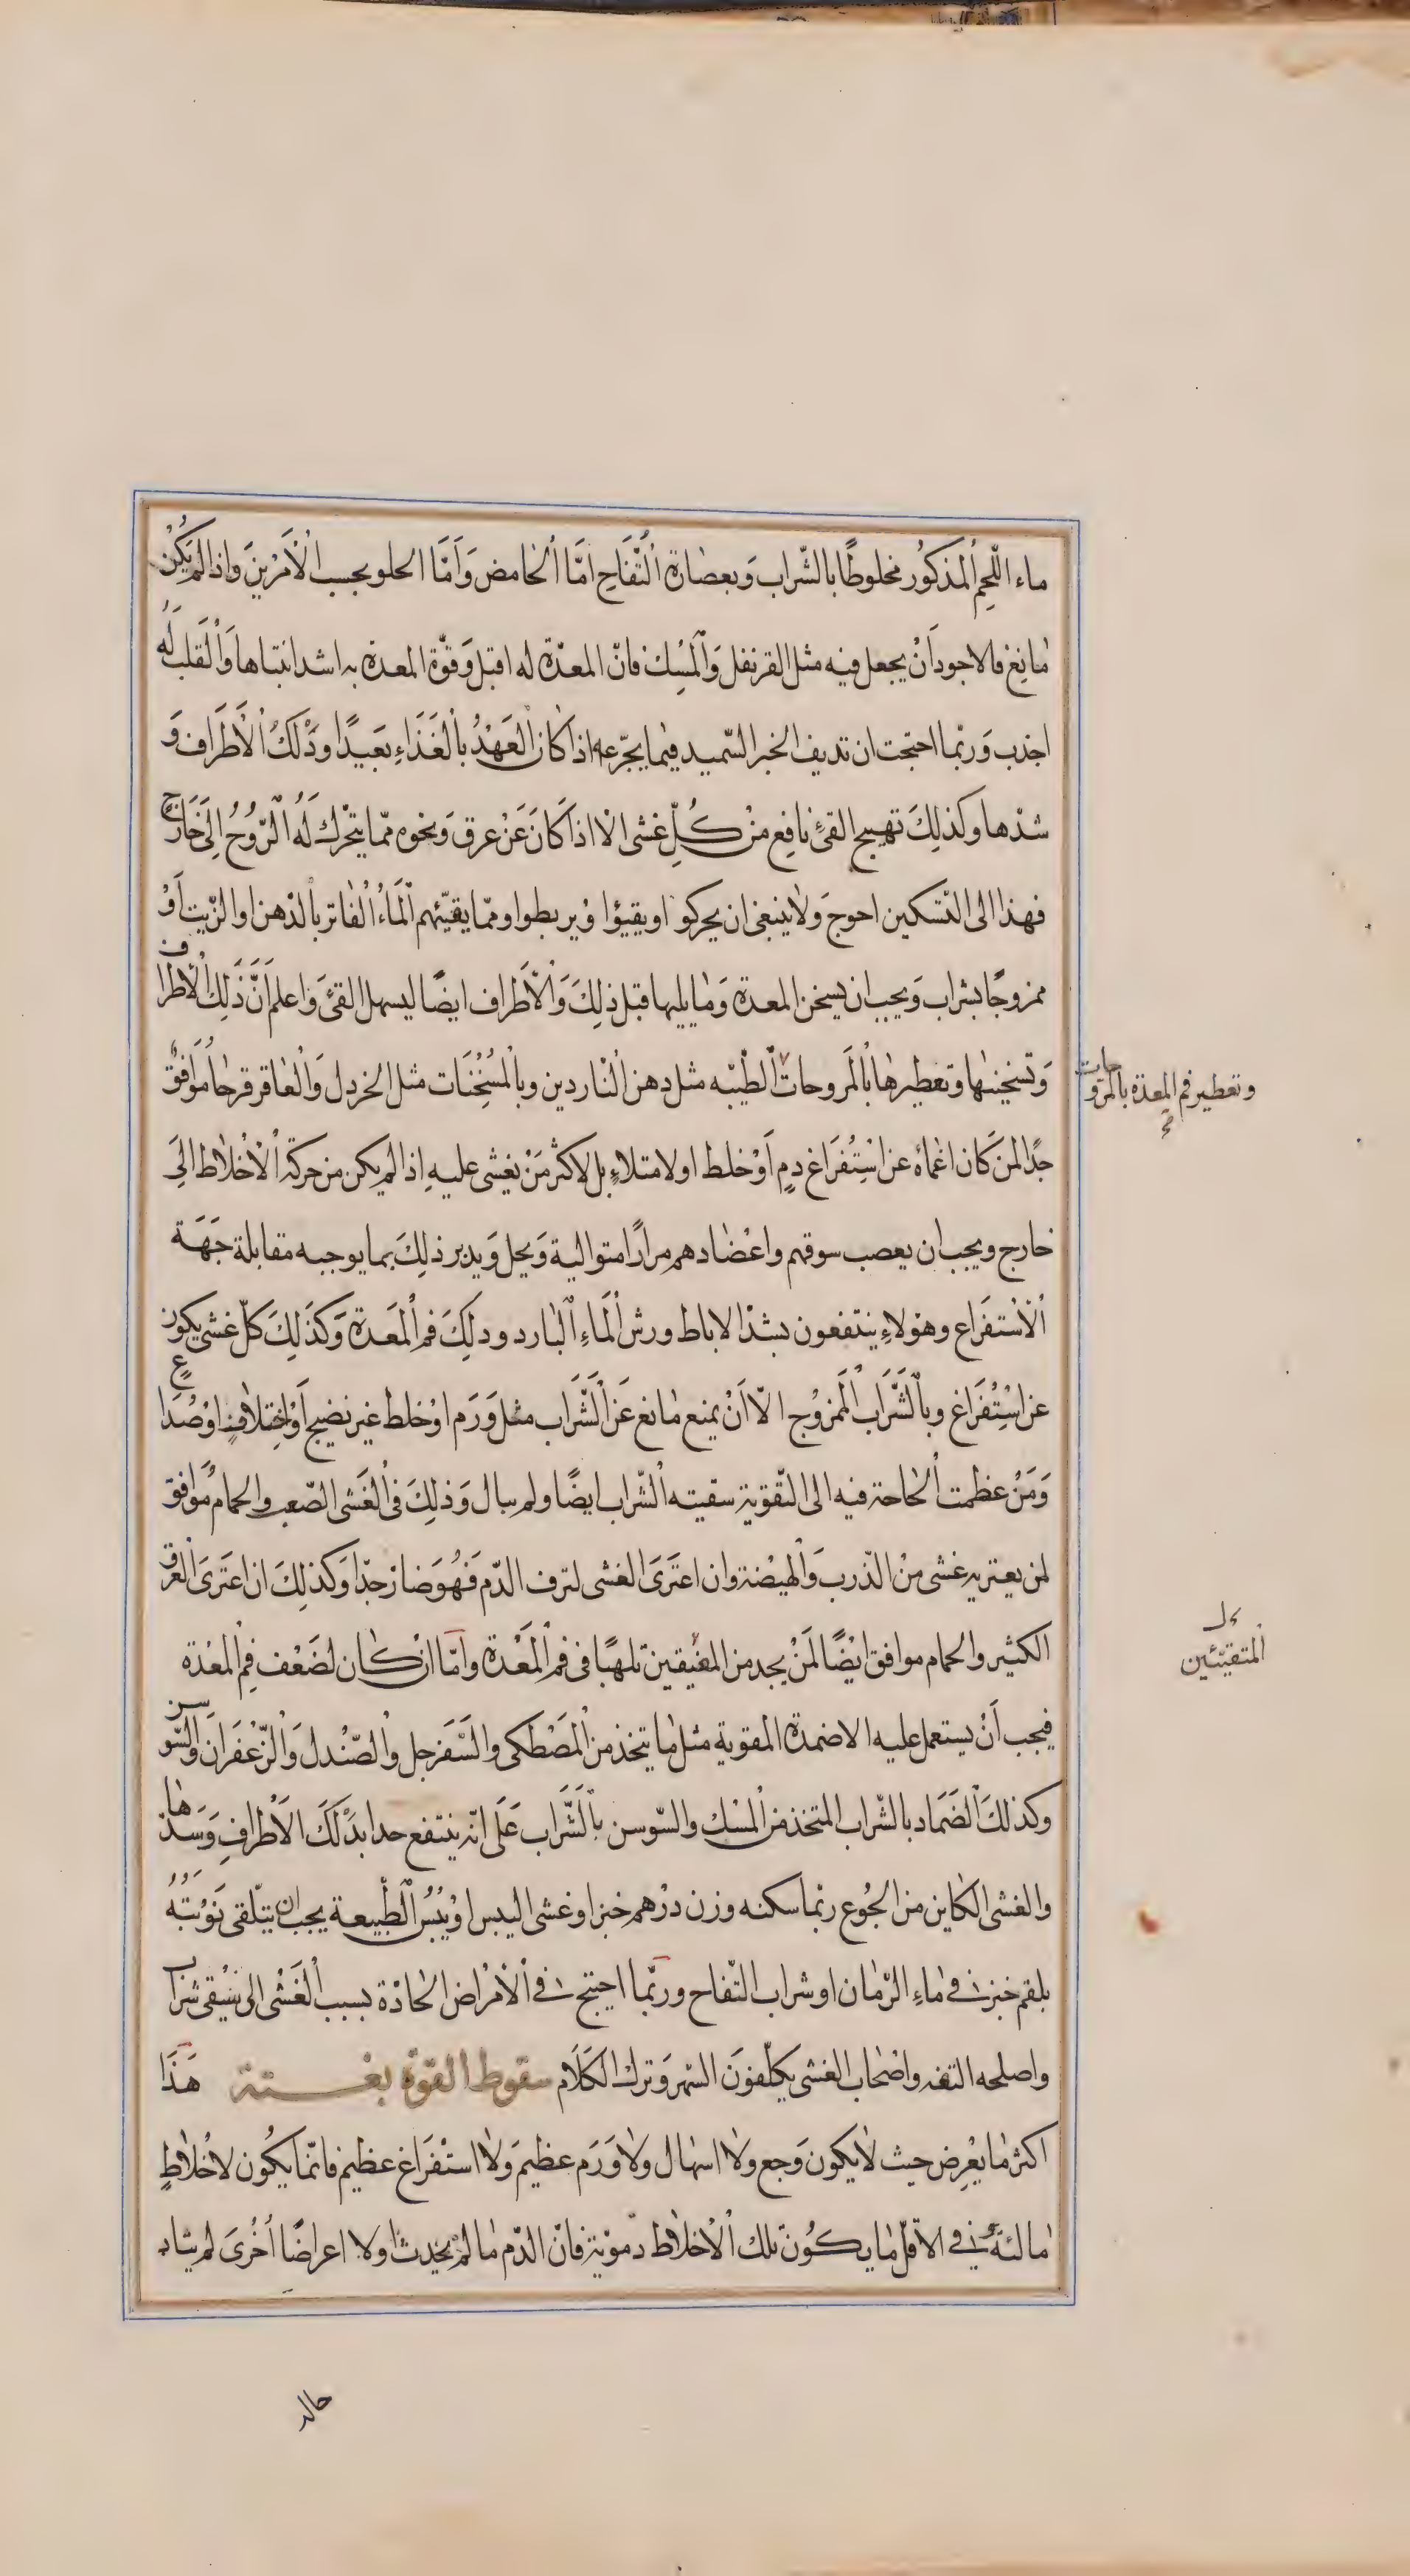 ماء اللّحم المذكور مخلوطًا بالشّراب وبعصارة التّفّاح امّا الحامض وامّا الحلو بحسب الأمرين واذا لم يكن
مانع فالاجود أنْ يجعل فيه مثل القرنفل والمسك فانّ المعدة له اقبل وقوّة المعدة به اشد انتباها والقلب له
اجذب وربّما احتجت ان تديف الخبز السّميد فيما يجرّعه اذا كان العهد بالغذاء بعيدًا ودلك الأطراف و
شدّها وكذلك تهييج القئ نافع من كلّ غشى الا اذا كان عن عرق ونحوه ممّا يتحرك له الرّوح الى خارج
فهذا الى التّسكين احوج ولا ينبغى ان يحركوا او يقيؤا او يربطوا وممّا يقيّئهم الماء الفاتر بالدّهن او الزّيت أو
ممزوجًا بشراب ويجب ان يسخن المعدة وما يليها قبل ذلك والأطراف ايضًا ليسهل القئ واعلم أنّ ذلك الأطراف
وتسخينها وتعطيرها بالمروحات الطّيّبه مثل دهن النّاردين وبالمسخنات مثل الخردل والعاقر قرحا موافق
جدًا لمن كان اغماؤه عن استفراغ دم أو خلط او لامتلاء بل لاكثر من يغشى عليه اذا لم يكن من حركة الأخلاط الى
خارج ويجب ان يعصب سوقهم واعضادهم مرارًا متوالية ويحل ويدبر ذلك بما يوجبه مقابلة جهة
الأستفراغ وهؤلاء ينتفعون بشدّ الاباط ورش الماء البارد ودلك فم المعدة وكذلك كلّ غشى يكون
عن استفراغ وبالشّراب الممزوج الّا أنْ يمنع مانع عن الشّراب مثل ورم او خلط غير نضيج أو اختلاف او صداع
ومن عظمت الحاجة فيه الى التّقوية سقيته الشّراب ايضًا ولم يبال وذلك فى الغشى الصّعب والحمام موافق
لمن يعتريه غشى من الذّرب والهيضة وان اعترى الغشى لنزف الدّم فهو ضار جدّا وكذلك ان اعترى العرق
الكثير والحمام موافق ايضًا لمن يجد من المفيقين تلهبًا فى فم المعدة وامّا ان كان لضعف فم المعدة
فيجب أنْ يستعمل عليه الاضمدة المقوية مثل ما يتخذ من المصطكى والسّفرجل والصّندل والزّعفران والسّوسن
وكذلك الضماد بالشّراب المتخذ من المسك والسّوسن بالشّراب على انّه ينتفع جدا بدلك الأطراف وشدّها
والغشى الكاين من الجوع ربّما سكنه وزن درهم خبزا وغشى اليبس او يبس الطّبيعة يجب ان يتلقى نوبته
بلقم خبز فى ماء الرّمان او شراب التّفاح وربّما احتيج فى الأمراض الحادّة بسبب الغشى الى سقى شراب
واصلحه التفه واصحاب الغشى يكلّفون السّهر وترك الكلام سقوط القوّة بغتة هذا
اكثر ما يعرض حيث لا يكون وجع ولا اسهال ولا ورم عظيم ولا استفراغ عظيم فانّما يكون لأخلاط
مالئة وفى الأقلّ ما يكون تلك الأخلاط دمويّة فانّ الدّم ما لم يحدث اولا اعراضًا أخرى لم يتاد
وتعطير فم المعدة بالمروحات
المتقيّئين
حاله